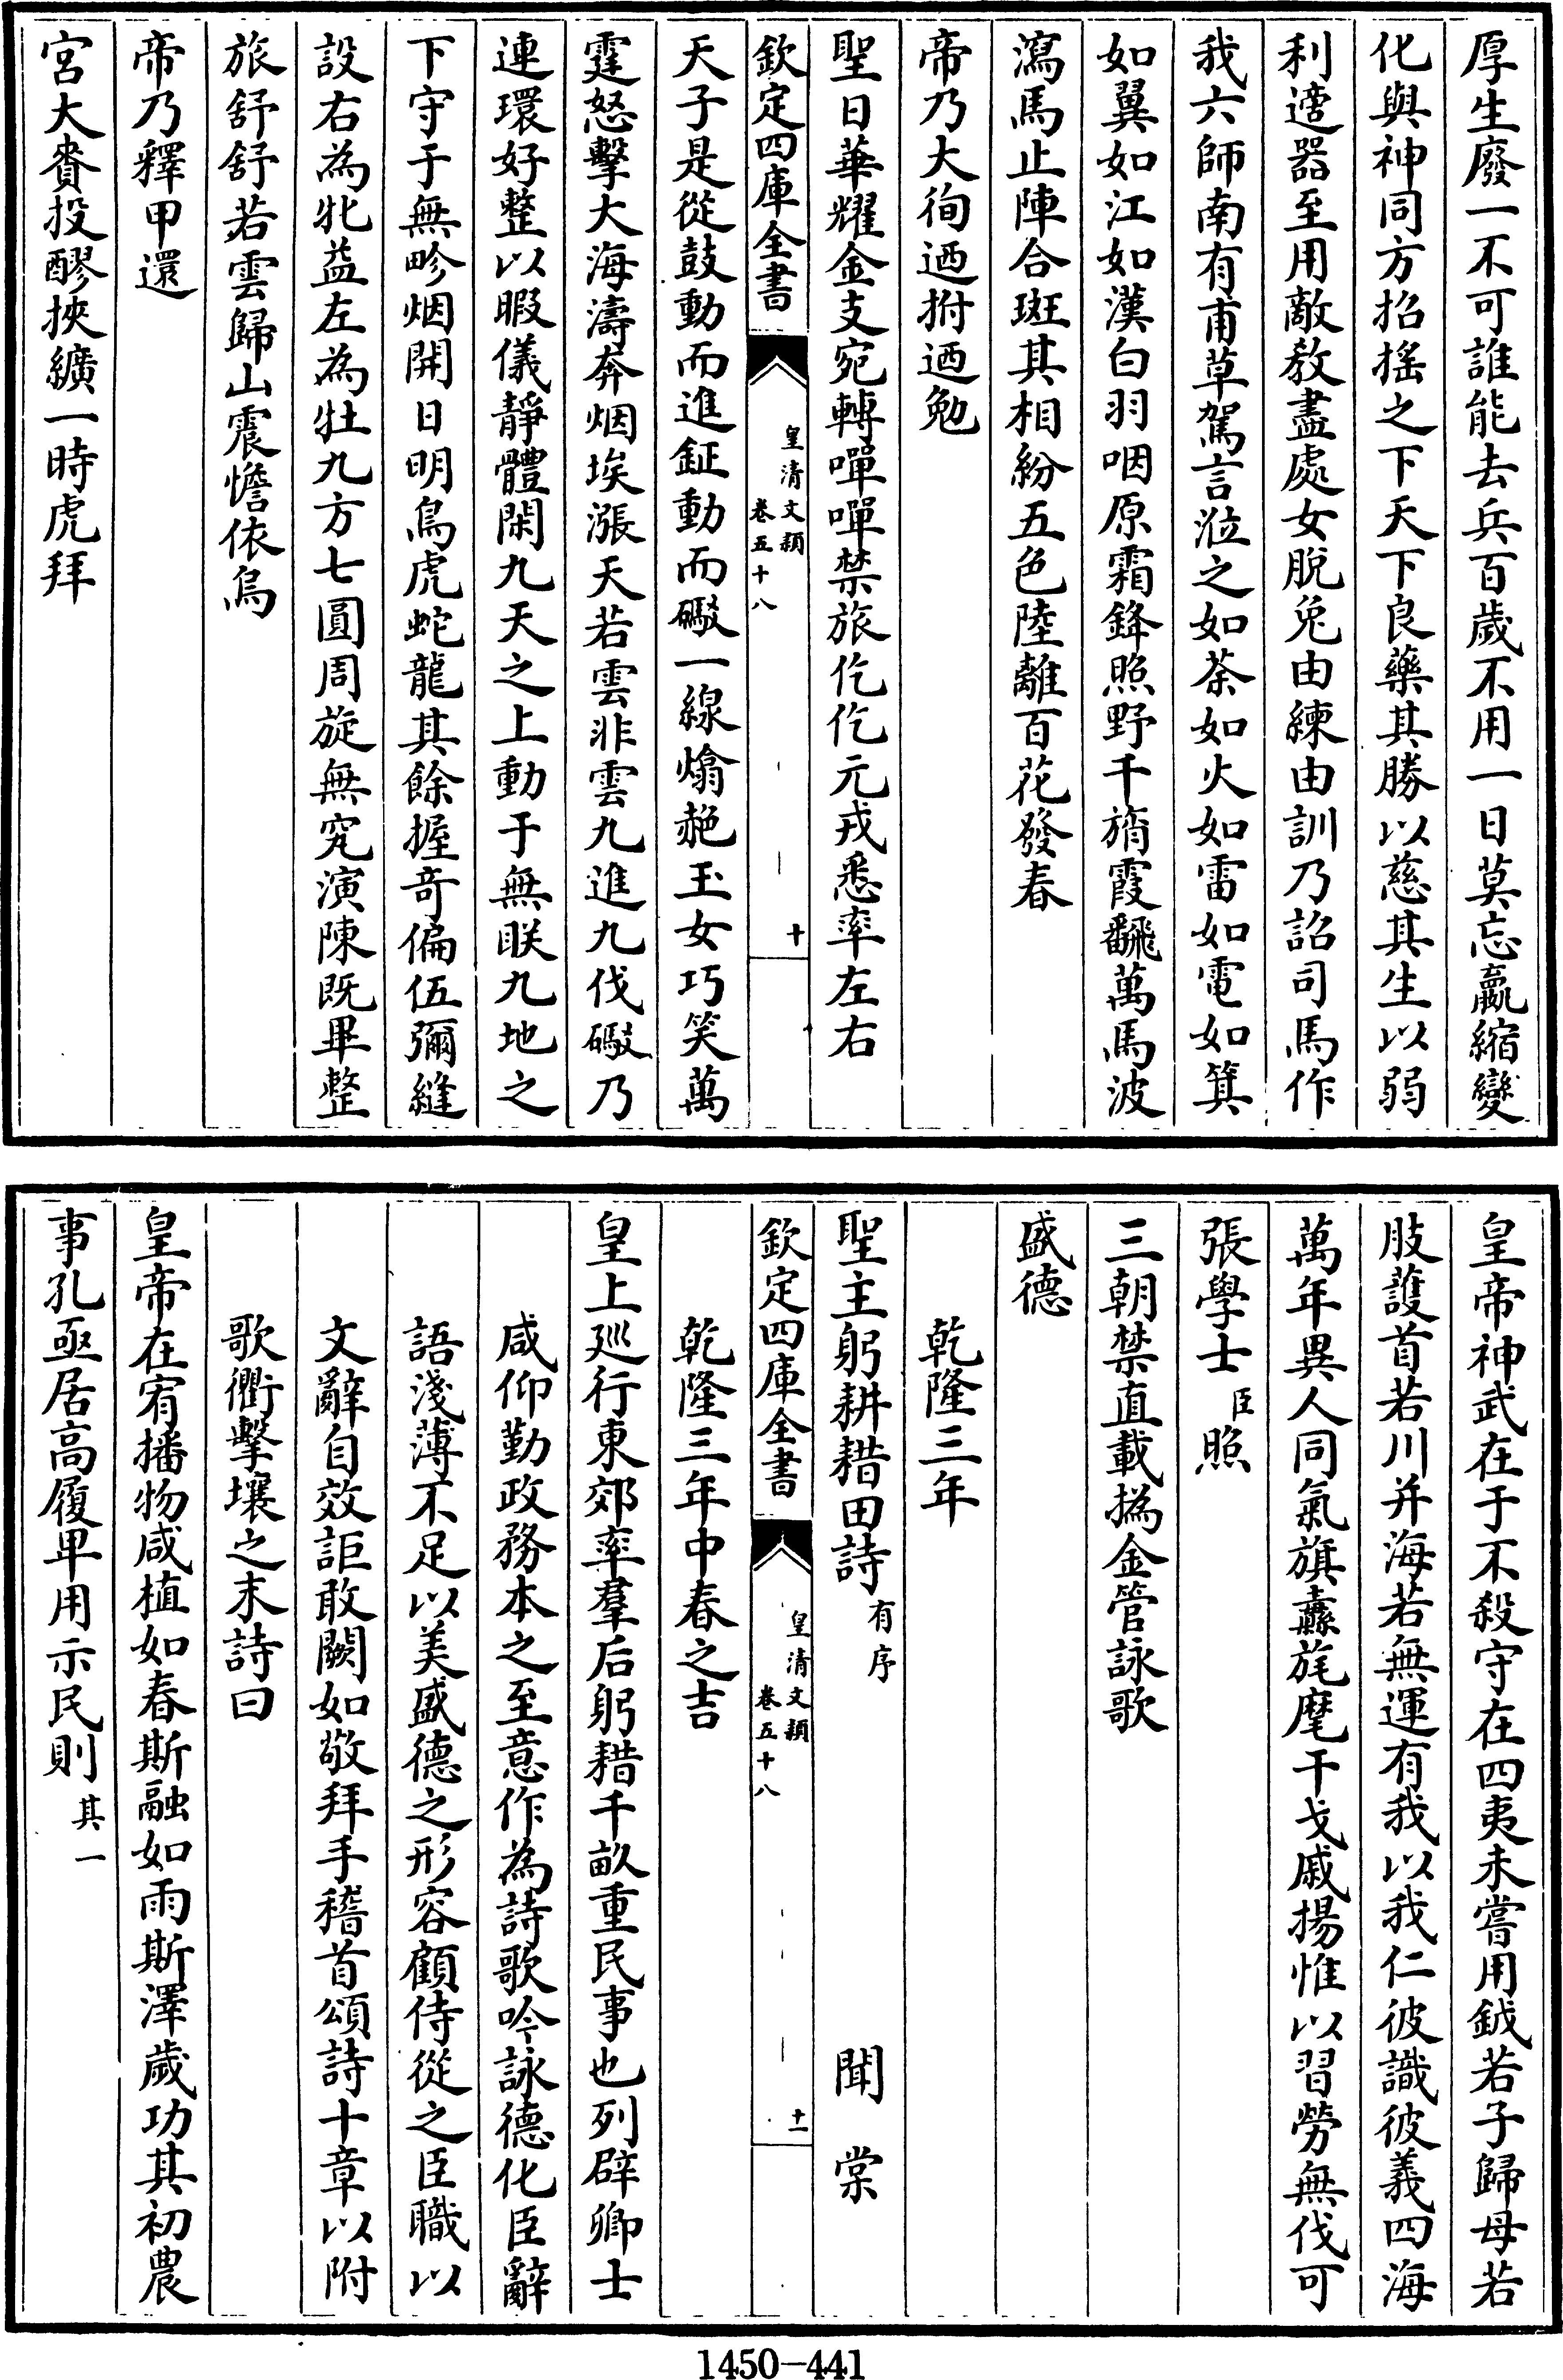 厚生廢一不可誰能去兵百歲不用一日莫忘贏縮變
化與神同方招搖之下天下良藥其勝以慈其生以弱
利適器至用敵教盡處女脫兔由練由訓乃詔司馬作
我六師南有甫草駕言涖之如荼如火如雷如電如箕
如翼如江如漢白羽咽原霜鋒照野千旓霞飜萬馬波
瀉馬止陣合斑其相紛五色陸離百花發春
帝乃大徇迺拊迺勉
聖日華耀金支宛轉嘽嘽禁旅仡仡元戎悉率左右
欽定四庫全書
皇清文穎
卷五十八
十
天子是從鼓動而進鉦動而礮一線熻赩玉女巧笑萬
霆怒擊大海濤奔烟埃漲天若雲非雲九進九伐礮乃
連環好整以暇儀靜體閑九天之上動于無眹九地之
下守于無畛烟開日明鳥虎蛇龍其餘握奇偏伍彌縫
設右為牝益左為牡九方七圓周旋無究演陳既畢整
旅舒舒若雲歸山震憺依烏
帝乃釋甲還
宮大賚投醪挾纊一時虎拜
皇帝神武在于不殺守在四夷未嘗用鉞若子歸母若
肢護首若川并海若無運有我以我仁彼識彼義四海
萬年異人同氣旗纛旄麾干戈戚揚惟以習勞無伐可
張學士臣照
三朝禁直載撝金管詠歌
盛德
乾隆三年
聖主躬耕耤田詩有序 聞棠
欽定四庫全書
皇清文穎
卷五十八
十一
乾隆三年中春之吉
皇上廵行東郊率羣后躬耤千畝重民事也列辟卿士
咸仰勤政務本之至意作為詩歌吟詠德化臣辭
語淺薄不足以美盛德之形容顧侍從之臣職以
文辭自效詎敢闕如敬拜手稽首頌詩十章以附
歌衢擊壤之末詩曰
皇帝在宥播物咸植如春斯融如雨斯澤歲功其初農
事孔亟居高履卑用示民則其一
1450-441